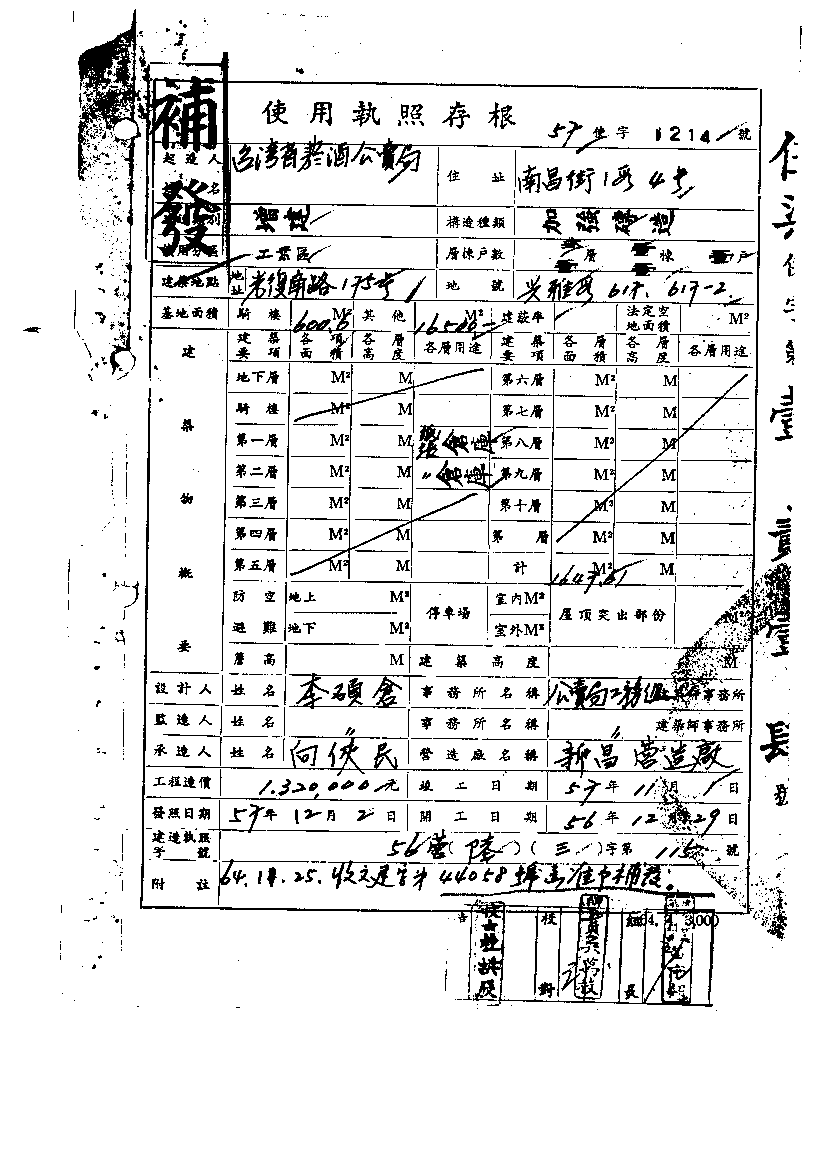 補發
使用執照存根
57 使字 1214 號
起造人
台灣省菸酒公賣局
住址
南昌街1段4號
名
別
增建
構造種類
加強磚造
使用分區
工業區
層棟戶數
層
棟
戶
建築地點
地址
光復南路175號
地號
興雅段 617、617-2
基地面積
騎樓
600.0 M²
其他
M²
建蔽率
法定空地面積
M²
建築物概要
建築要項 各項面積 各層高度 各層用途 建築要項 各層面積 各層高度 各層用途
地下層 M² M 第六層 M² M
騎樓 M² M 第七層 M² M
第一層 M² M 倉庫 第八層 M² M
第二層 M² M 〃倉庫 第九層 M² M
第三層 M² M 第十層 M² M
第四層 M² M 第 層 M² M
第五層 M² M 計 M² M
防空 地上 M² 停車場 室內M² 屋頂突出部份 M²
避難 地下 M² 室外M²
簷高 M 建築高度 M
設計人 姓名 李碩倉 事務所名稱 公賣局工務組 建築師事務所
監造人 姓名 〃 事務所名稱 〃 建築師事務所
承造人 姓名 向俠民 營造廠名稱 新昌營造廠
工程造價 1,320,000元 竣工日期 57年11月1日
發照日期 57年12月2日 開工日期 56年12月29日
建造執照字號 56營(陸)(三)字第115號
附註 64.11.25.收文建字第44058號
校對
長